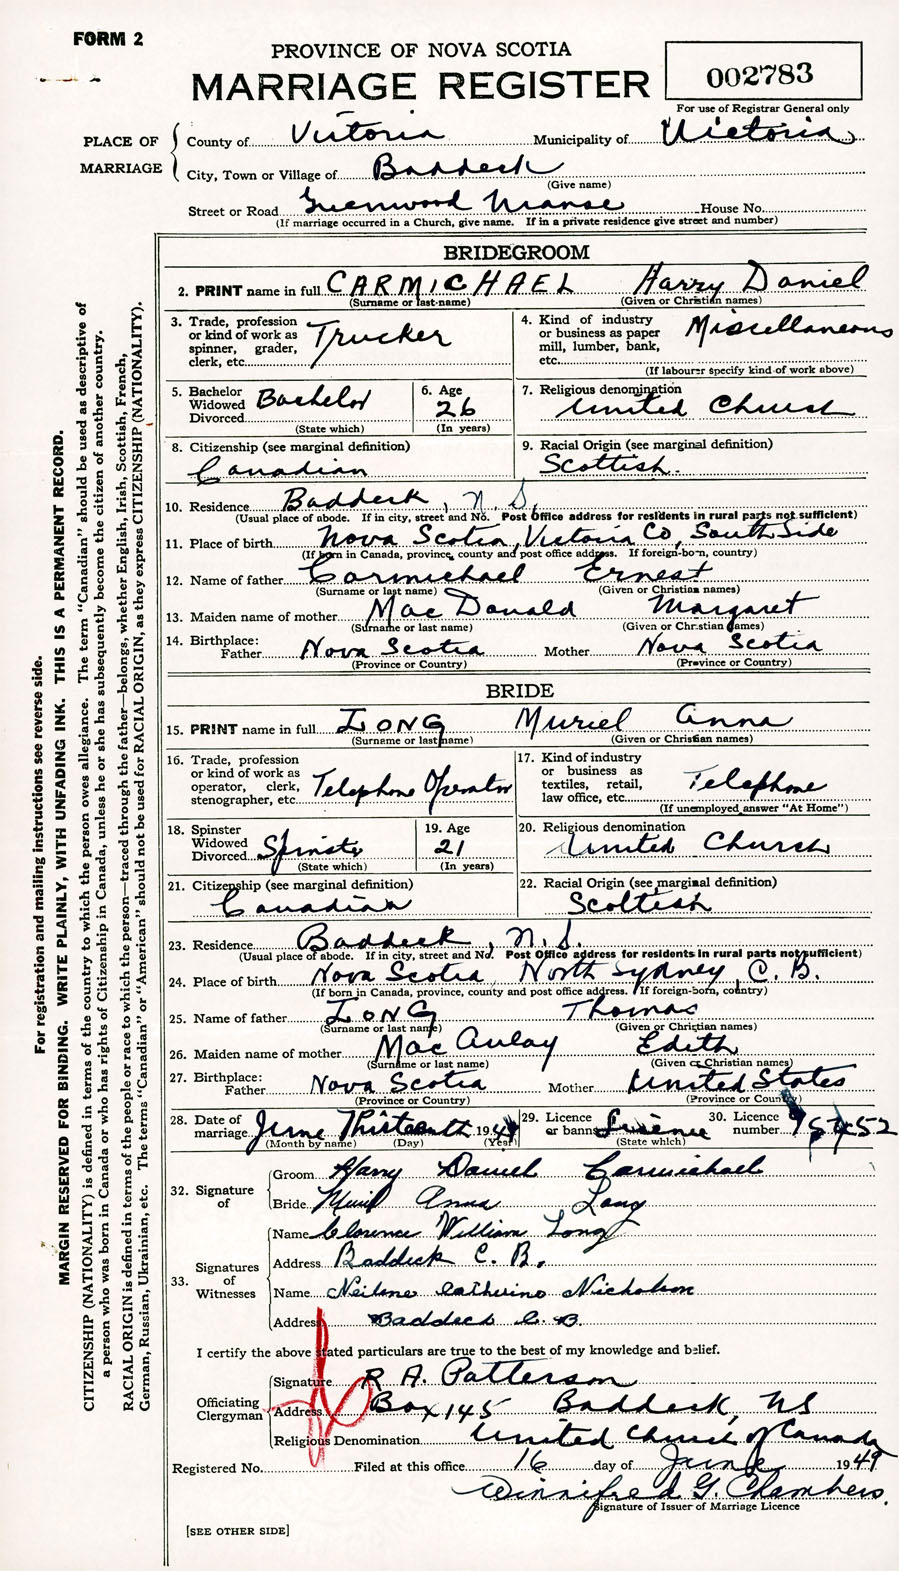 FORM 2
PROVINCE OF NOVA SCOTIA
MARRIAGE REGISTER
002783
For use of Registrar General only
PLACE OF MARRIAGE
County of Victoria Municipality of Victoria
City, Town or Village of Baddeck
(Give name)
Street or Road Greenwood Manse House No.
(If marriage occurred in a Church, give name. If in a private residence give street and number)
BRIDEGROOM
2. PRINT name in full CARMICHAEL Harry Daniel
(Surname or last name) (Given or Christian names)
3. Trade, profession or kind of work as spinner, grader, clerk, etc. Trucker
4. Kind of industry or business as paper mill, lumber, bank, etc. Miscellaneous
(If labourer specify kind of work above)
5. Bachelor Widowed Divorced Bachelor
(State which)
6. Age 26
(In years)
7. Religious denomination
United Church
8. Citizenship (see marginal definition)
Canadian
9. Racial Origin (see marginal definition)
Scottish.
10. Residence Baddeck, N.S.
(Usual place of abode. If in city, street and No. Post Office address for residents in rural parts not sufficient)
11. Place of birth Nova Scotia, Victoria Co, South Side
(If born in Canada, province, county and post office address. If foreign-born, country)
12. Name of father Carmichael Ernest
(Surname or last name) (Given or Christian names)
13. Maiden name of mother MacDonald Margaret
(Surname or last name) (Given or Christian names)
14. Birthplace:
Father Nova Scotia Mother Nova Scotia
(Province or Country) (Province or Country)
BRIDE
15. PRINT name in full LONG Muriel Anna
(Surname or last name) (Given or Christian names)
16. Trade, profession or kind of work as operator, clerk, stenographer, etc. Telephone Operator
17. Kind of industry or business as textiles, retail, law office, etc. Telephone
(If unemployed answer "At Home")
18. Spinster Widowed Divorced Spinster
(State which)
19. Age 21
(In years)
20. Religious denomination
United Church
21. Citizenship (see marginal definition)
Canadian
22. Racial Origin (see marginal definition)
Scottish
23. Residence Baddeck, N.S.
(Usual place of abode. If in city, street and No. Post Office address for residents in rural parts not sufficient)
24. Place of birth Nova Scotia, North Sydney, C.B.
(If born in Canada, province, county and post office address. If foreign-born, country)
25. Name of father LONG Thomas
(Surname or last name) (Given or Christian names)
26. Maiden name of mother MacAulay Edith
(Surname or last name) (Given or Christian names)
27. Birthplace:
Father Nova Scotia Mother United States
(Province or Country) (Province or Country)
28. Date of marriage June Thirteenth 1949
(Month by name) (Day) (Year)
29. Licence or banns Licence
(State which)
30. Licence number
32. Signature of
Groom Harry Daniel Carmichael
Bride Muriel Anna Long
33. Signatures of Witnesses
Name Clarence William Long
Address Baddeck C.B.
Name Catherine Nicholson
Address Baddeck C.B.
I certify the above stated particulars are true to the best of my knowledge and belief.
Officiating Clergyman
Signature R. A. Patterson
Address Box 145 Baddeck, NS
Religious Denomination United Church of Canada
Registered No. Filed at this office 16 day of June 1949
Winnifred G. Chambers.
Signature of Issuer of Marriage Licence
[SEE OTHER SIDE]
For registration and mailing instructions see reverse side.
MARGIN RESERVED FOR BINDING. WRITE PLAINLY, WITH UNFADING INK. THIS IS A PERMANENT RECORD.
CITIZENSHIP (NATIONALITY) is defined in terms of the country to which the person owes allegiance. The term "Canadian" should be used as descriptive of
a person who was born in Canada or who has rights of Citizenship in Canada, unless he or she has subsequently become the citizen of another country.
RACIAL ORIGIN is defined in terms of the people or race to which the person—traced through the father—belongs, whether English, Irish, Scottish, French,
German, Russian, Ukrainian, etc. The terms "Canadian" or "American" should not be used for RACIAL ORIGIN, as they express CITIZENSHIP (NATIONALITY).